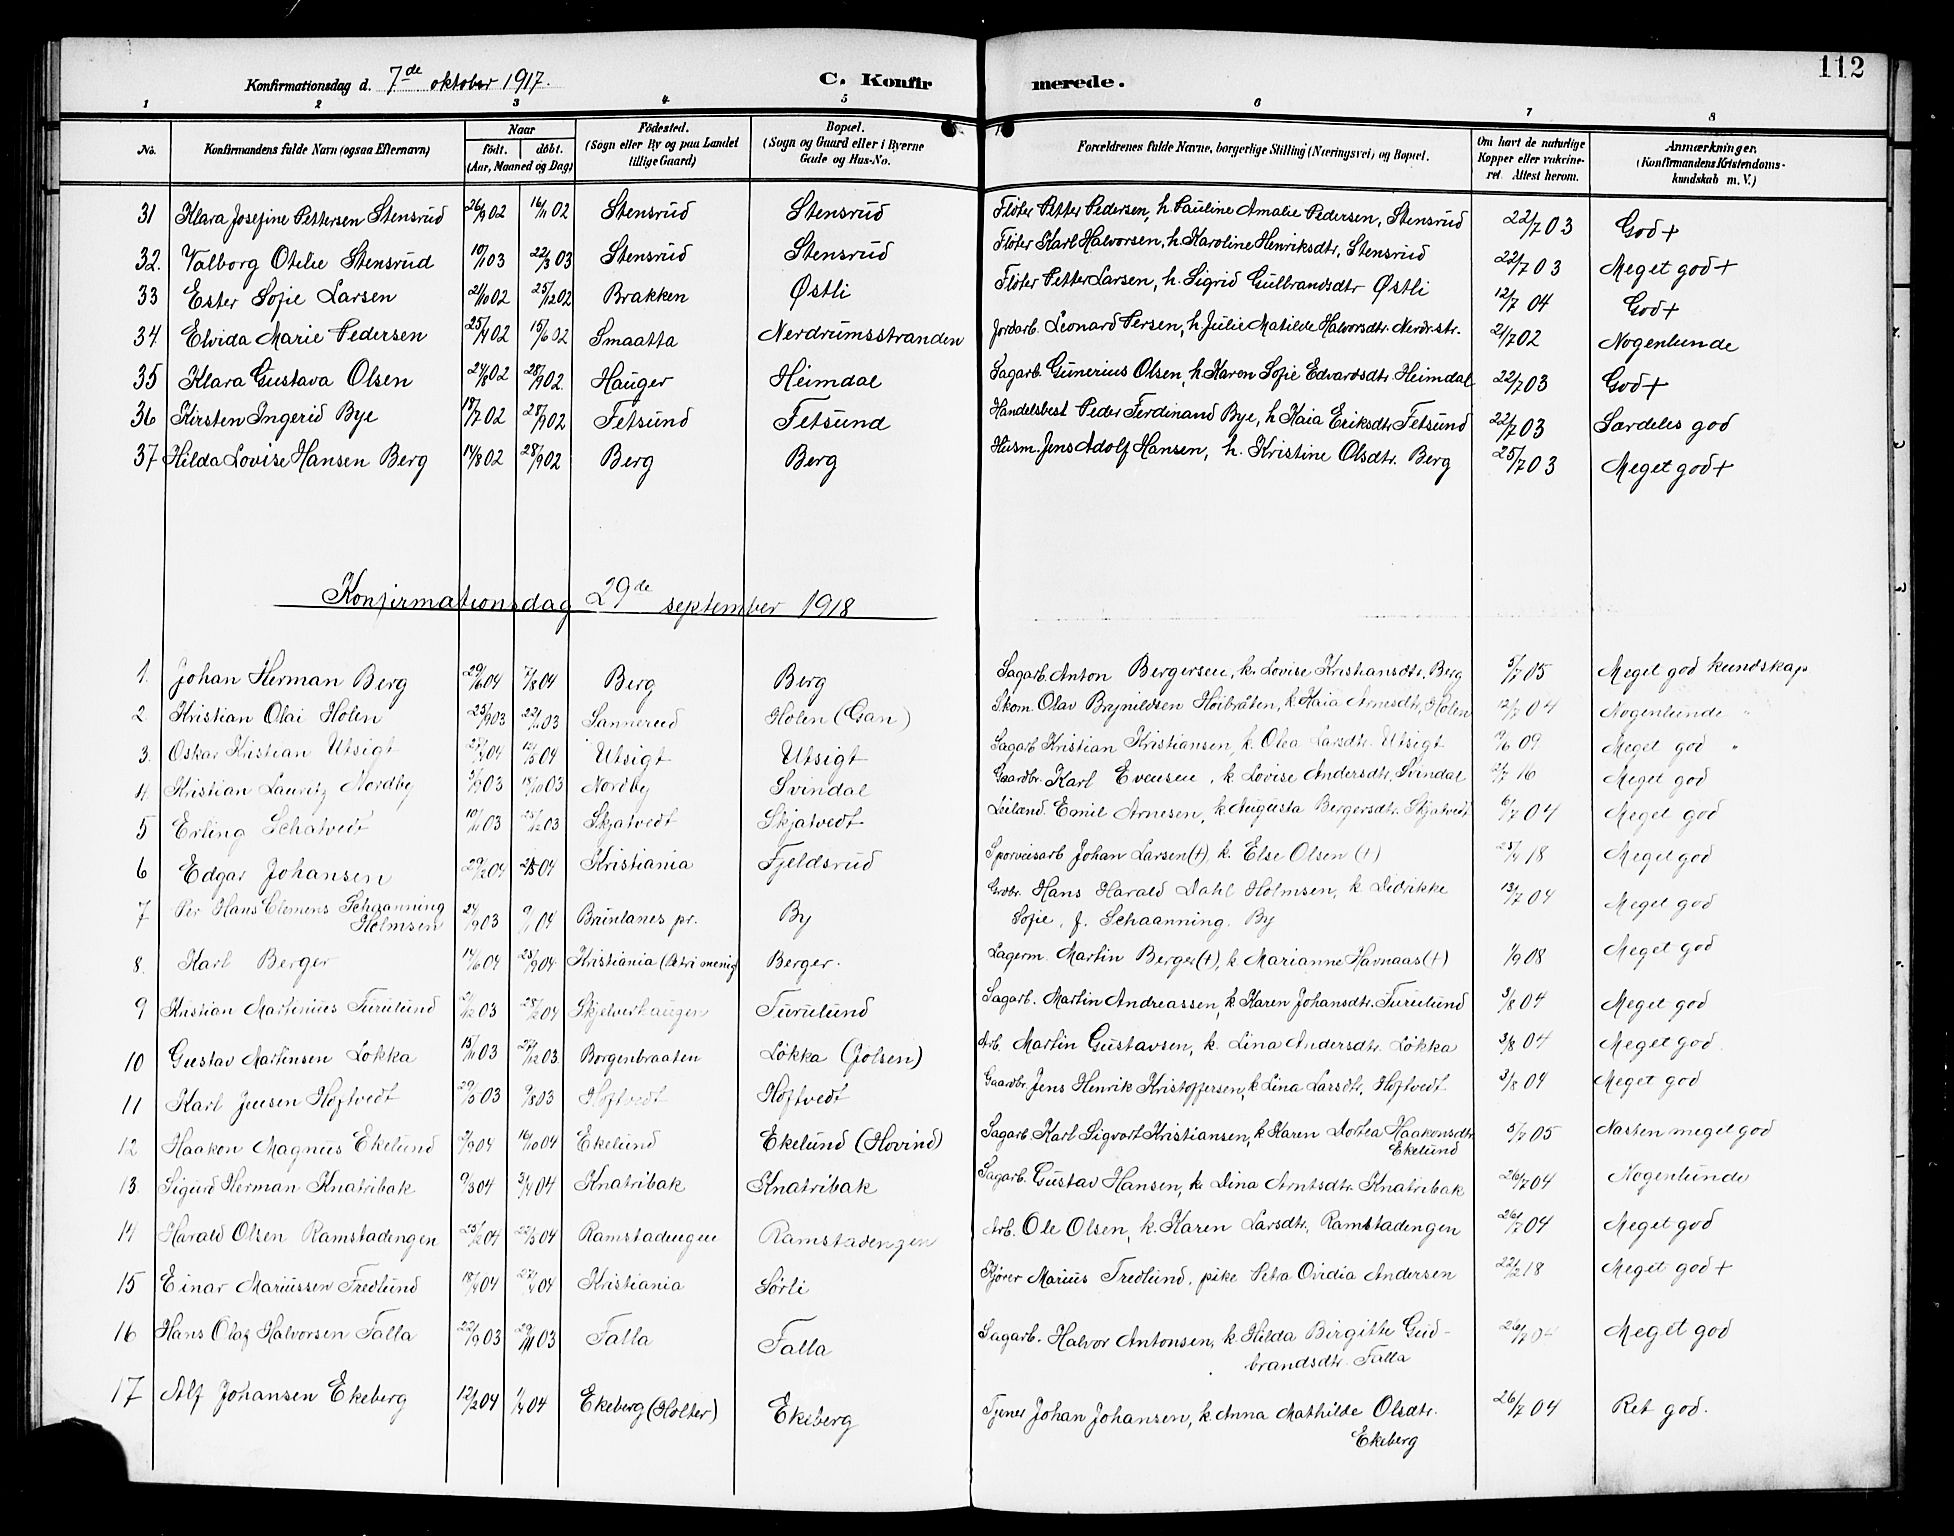 112
Konfirmationsdag d. 7de oktober 1917.
C. Konfirmerede.
1 2 3 4 5 6 7 8
No. Konfirmandens fulde Navn (ogsaa Efternavn) Naar födt. döbt. (Aar, Maaned og Dag) Födested. (Sogn eller By og paa Landet tillige Gaard) Bopæl. (Sogn og Gaard eller i Byerne Gade og Hus-No. Forældrenes fulde Navne, borgerlige Stilling (Næringsvei) og Bopæl. Om havt de naturlige Kopper eller vakcineret. Attest herom. Anmærkninger. (Konfirmandens Kristendomskundskab m. V.)
31 Klara Josefine Pettersen Stensrud 26/9 02 16/11 02 Stensrud Stensrud Fløter Petter Pedersen, h. Pauline Amalie Pedersen, Stensrud 22/7 03 God +
32. Valborg Otilie Stensrud 10/1 03 22/3 03 Stensrud Stensrud Fløter Karl Halvorsen, h. Karoline Henriksdtr, Stensrud 22/7 03 Meget god +
33 Ester Sofie Larsen 21/10 02 25/12 02 Brakken Østli Fløter Petter Larsen, h. Sigrid Gulbrandsdtr Østli 12/7 04 God +
34 Elvida Marie Pedersen 25/4 02 15/6 02 Smaatta Nerdrumsstranden Jordarb. Leonard Persen, h. Julie Matilde Halvorsdtr. Nerdr.str. 21/7 02 Nogenlunde
35 Klara Gustava Olsen 24/8 02 28/9 02 Hauger Heimdal Sagarb. Gunerius Olsen, h. Karen Sofie Edvardsdtr. Heimdal 22/7 03 God +
36 Kirsten Ingerid Bye 18/7 02 28/9 02 Fetsund Fetsund Handelsbest Peder Ferdinand Bye, h. Kaia Eriksdtr. Fetsund 22/7 03 Særdeles god
37 Hilda Lovise Hansen Berg 14/8 02 28/9 02 Berg Berg Husm. Jens Adolf Hansen, h. Kristine Olsdtr. Berg 25/7 03 Meget god +
Konfirmationsdag 29de september 1918
1. Johan Herman Berg 29/6 04 7/8 04 Berg Berg Sagarb. Anton Bergersen, k. Lovise Kristiansdtr. Berg 5/7 05 Meget god kundskap
2 Kristian Olai Holen 25/9 03 22/11 03 Sannerud Holen (Gan) Skom. Olav Brynildsen Høibråten, k. Kaia Arnesdtr, Holen 12/7 04 Nogenlunde "
3. Oskar Kristian Utsigt Utsigt Utsigt Sagarb. Kristian Kristiansen, k. Olea Larsdtr. Utsigt Meget god "
4. Kristian Lauritz Nordby 18/10 03 Nordby Svindal Gaardbr. Karl Evensen, k. Lovise Andersdtr. Svindal Meget god
5 Erling Schatvedt 10/11 03 25/12 03 Skjatvedt Skjatvedt Leiland. Emil Arnesen, k. Augusta Bergersdtr. Skjatvedt 6/7 04 Meget god
6 Edgar Johansen 29/2 04 Kristiania Fjeldsrud Sporveisarb Johan Larsen (+), k. Else Olsen (+) Meget god
7 Per Hans Clemens Schaanning Holmsen 24/9 03 9/1 04 Brunlanes pr. By Grdbr. Hans Harald Dahl Holmsen, k. Didrikke Sofie, f. Schaanning. By 13/7 04 Meget god
8. Karl Berger 14/6 04 25/9 04 Kristiania (Petri menig) Berger. Lagerm. Martin Berger (+), k. Marianne Havnaas (+) 1/9 08 Meget god
9 Kristian Martinius Furulund 2/12 03 28/2 04 Skjelverhaugen Furulund Sagarb. Martin Andreassen, k. Karen Johansdtr. Furulund 3/8 04 Meget god
10 Gustav Martinsen Løkka 15/11 03 Borgenbraaten Løkka (Jølsen) Arb. Martin Gustavsen, k. Lina Andersdtr. Løkka 3/8 04 Meget god.
11 Karl Jensen Høftvedt 29/3 03 9/8 03 Høftvedt Høftvedt Gaardbr. Jens Henrik Kristoffersen, k. Lina Larsdtr, Høftvedt 3/8 04 Meget god
12 Haakon Magnus Ekelund 2/9 04 16/10 04 Ekelund Ekelund (Hovind) Sagarb. Karl Sigvart Kristiansen, k. Karen Dortea Haakonsdtr. Ekelund 5/7 05 Næsten meget god
13. Sigurd Herman Knatribak 9/3 04 3/4 04 Knatribak Knatribak Sagarb. Gustav Hansen, k. Dina Arntsdtr. Knatribak 26/7 04 Nogenlunde
14 Harald Olsen Ramstadengen 25/2 04 Ramstadengen Ramstadengen Arb. Ole Olsen, k. Karen Larsdtr. Ramstadengen 26/7 04 Meget god
15 Einar Mariussen Fredlund Kristiania Sørli Kjører Marius Fredlund, pike Petra Ovidia Andersen 22/2 18 Meget god +
16 Hans Olaf Halvorsen Falla 22/9 03 29/11 03 Falla Falla Sagarb. Halvor Antonsen, k. Hilda Birgitte Gudbrandsdtr. Falla 26/7 04 Meget god
17 Alf Johansen Ekeberg 12/2 04 1/4 04 Ekeberg (Holter) Ekeberg Tjener Johan Johansen, k. Anna Mathilde Olsdtr. Ekeberg 26/7 04 Ret god.